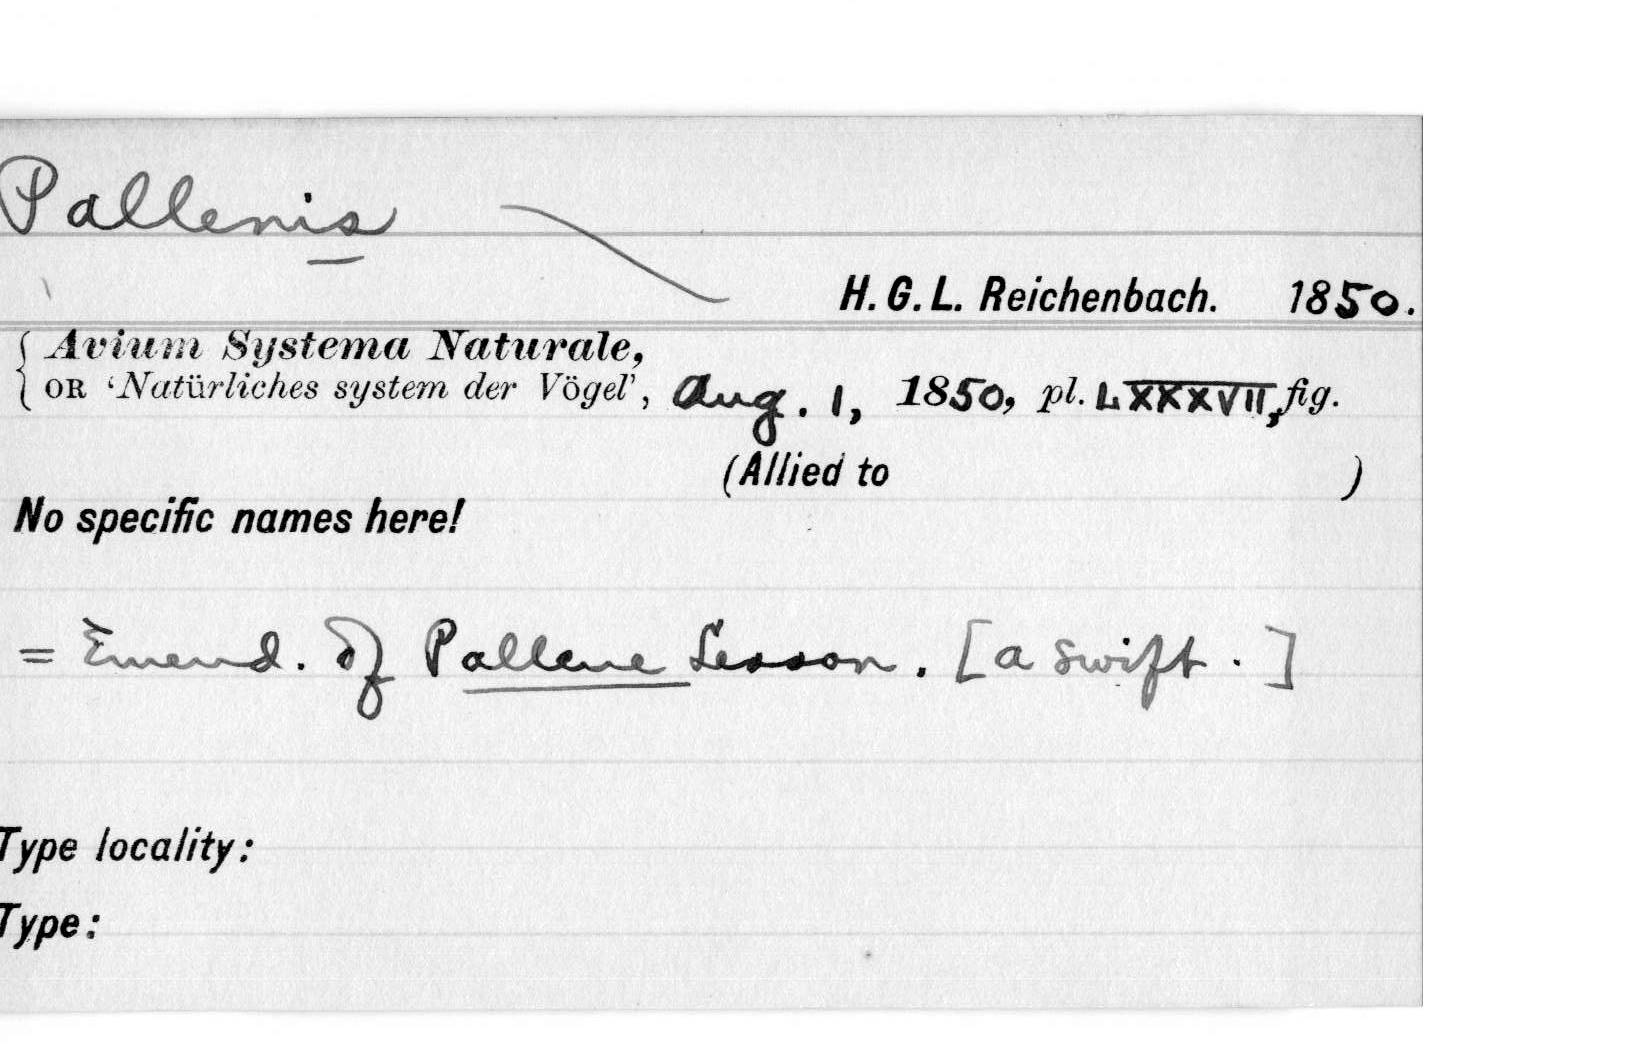 Pallenis
H. G. L. Reichenbach. 1850.
{ Avium Systema Naturale,
OR 'Natürliches system der Vögel', Aug. 1, 1850, pl. LXXXVII, fig.
(Allied to )
No specific names here!
= Emend. of Pallene Lesson. [a swift.]
Type locality:
Type: